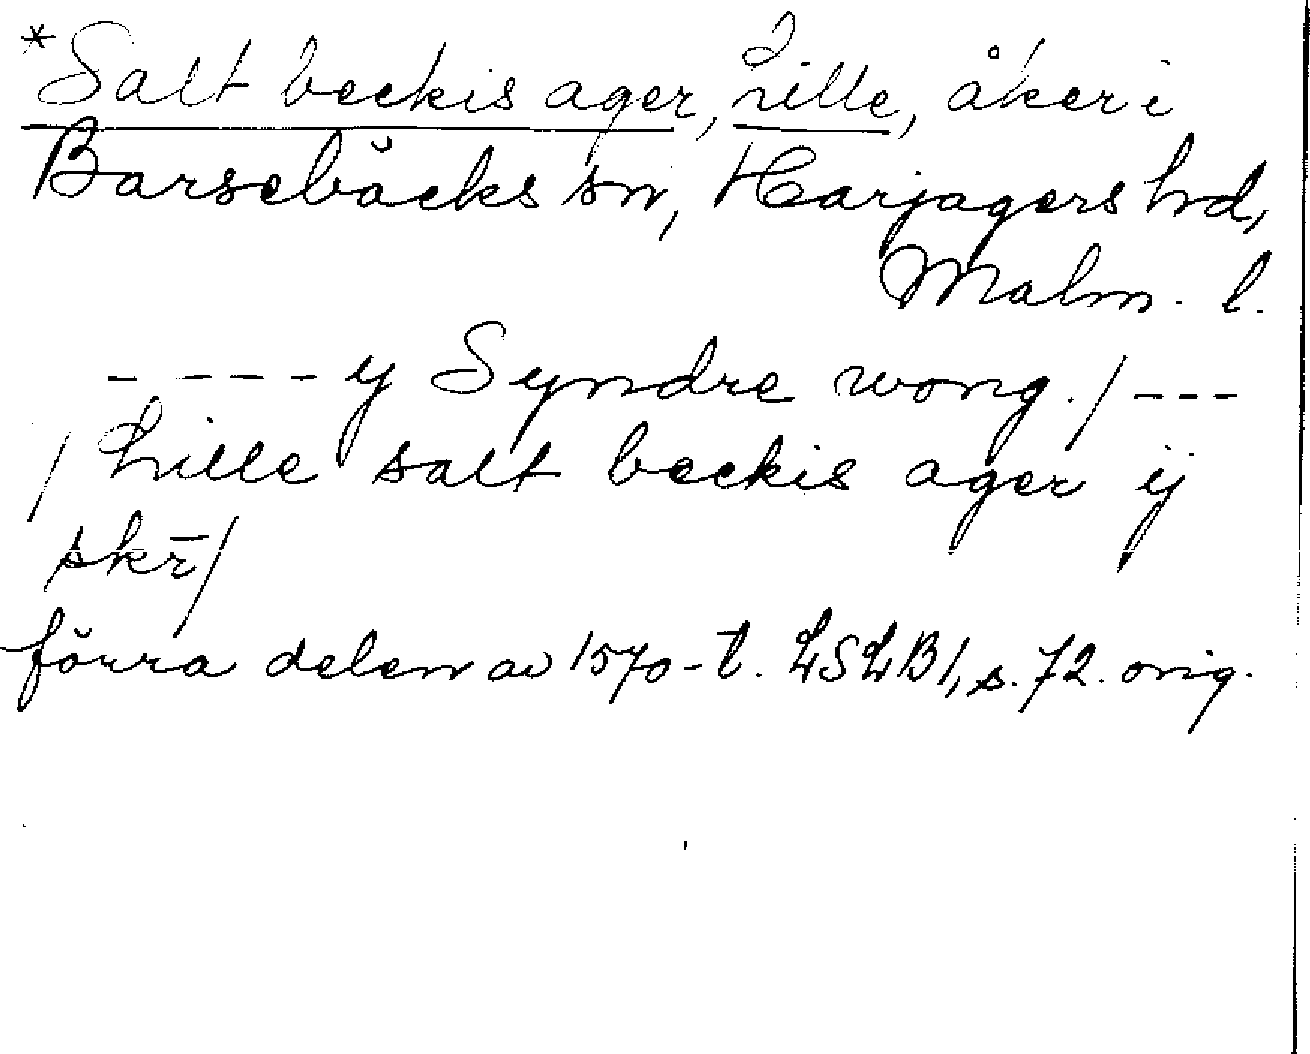 *Salt beckis ager, Lille, åker i
Barsebäcks sn, Harjagers hd,
Malm. l.
- - - - - y Syndre wong. / - - -
/ Lille salt beckis ager ij
skr̄/
förra delen av 1570-t. LSLB1, s. 72. orig.